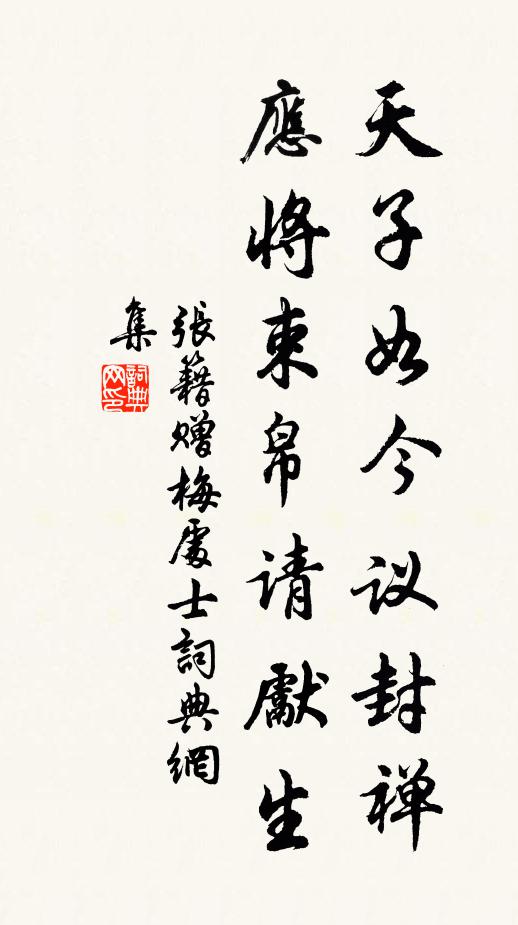 天子如今议封禅
應将束帛请獻生
張籍赠梅處士詞典網
集
詞典网印